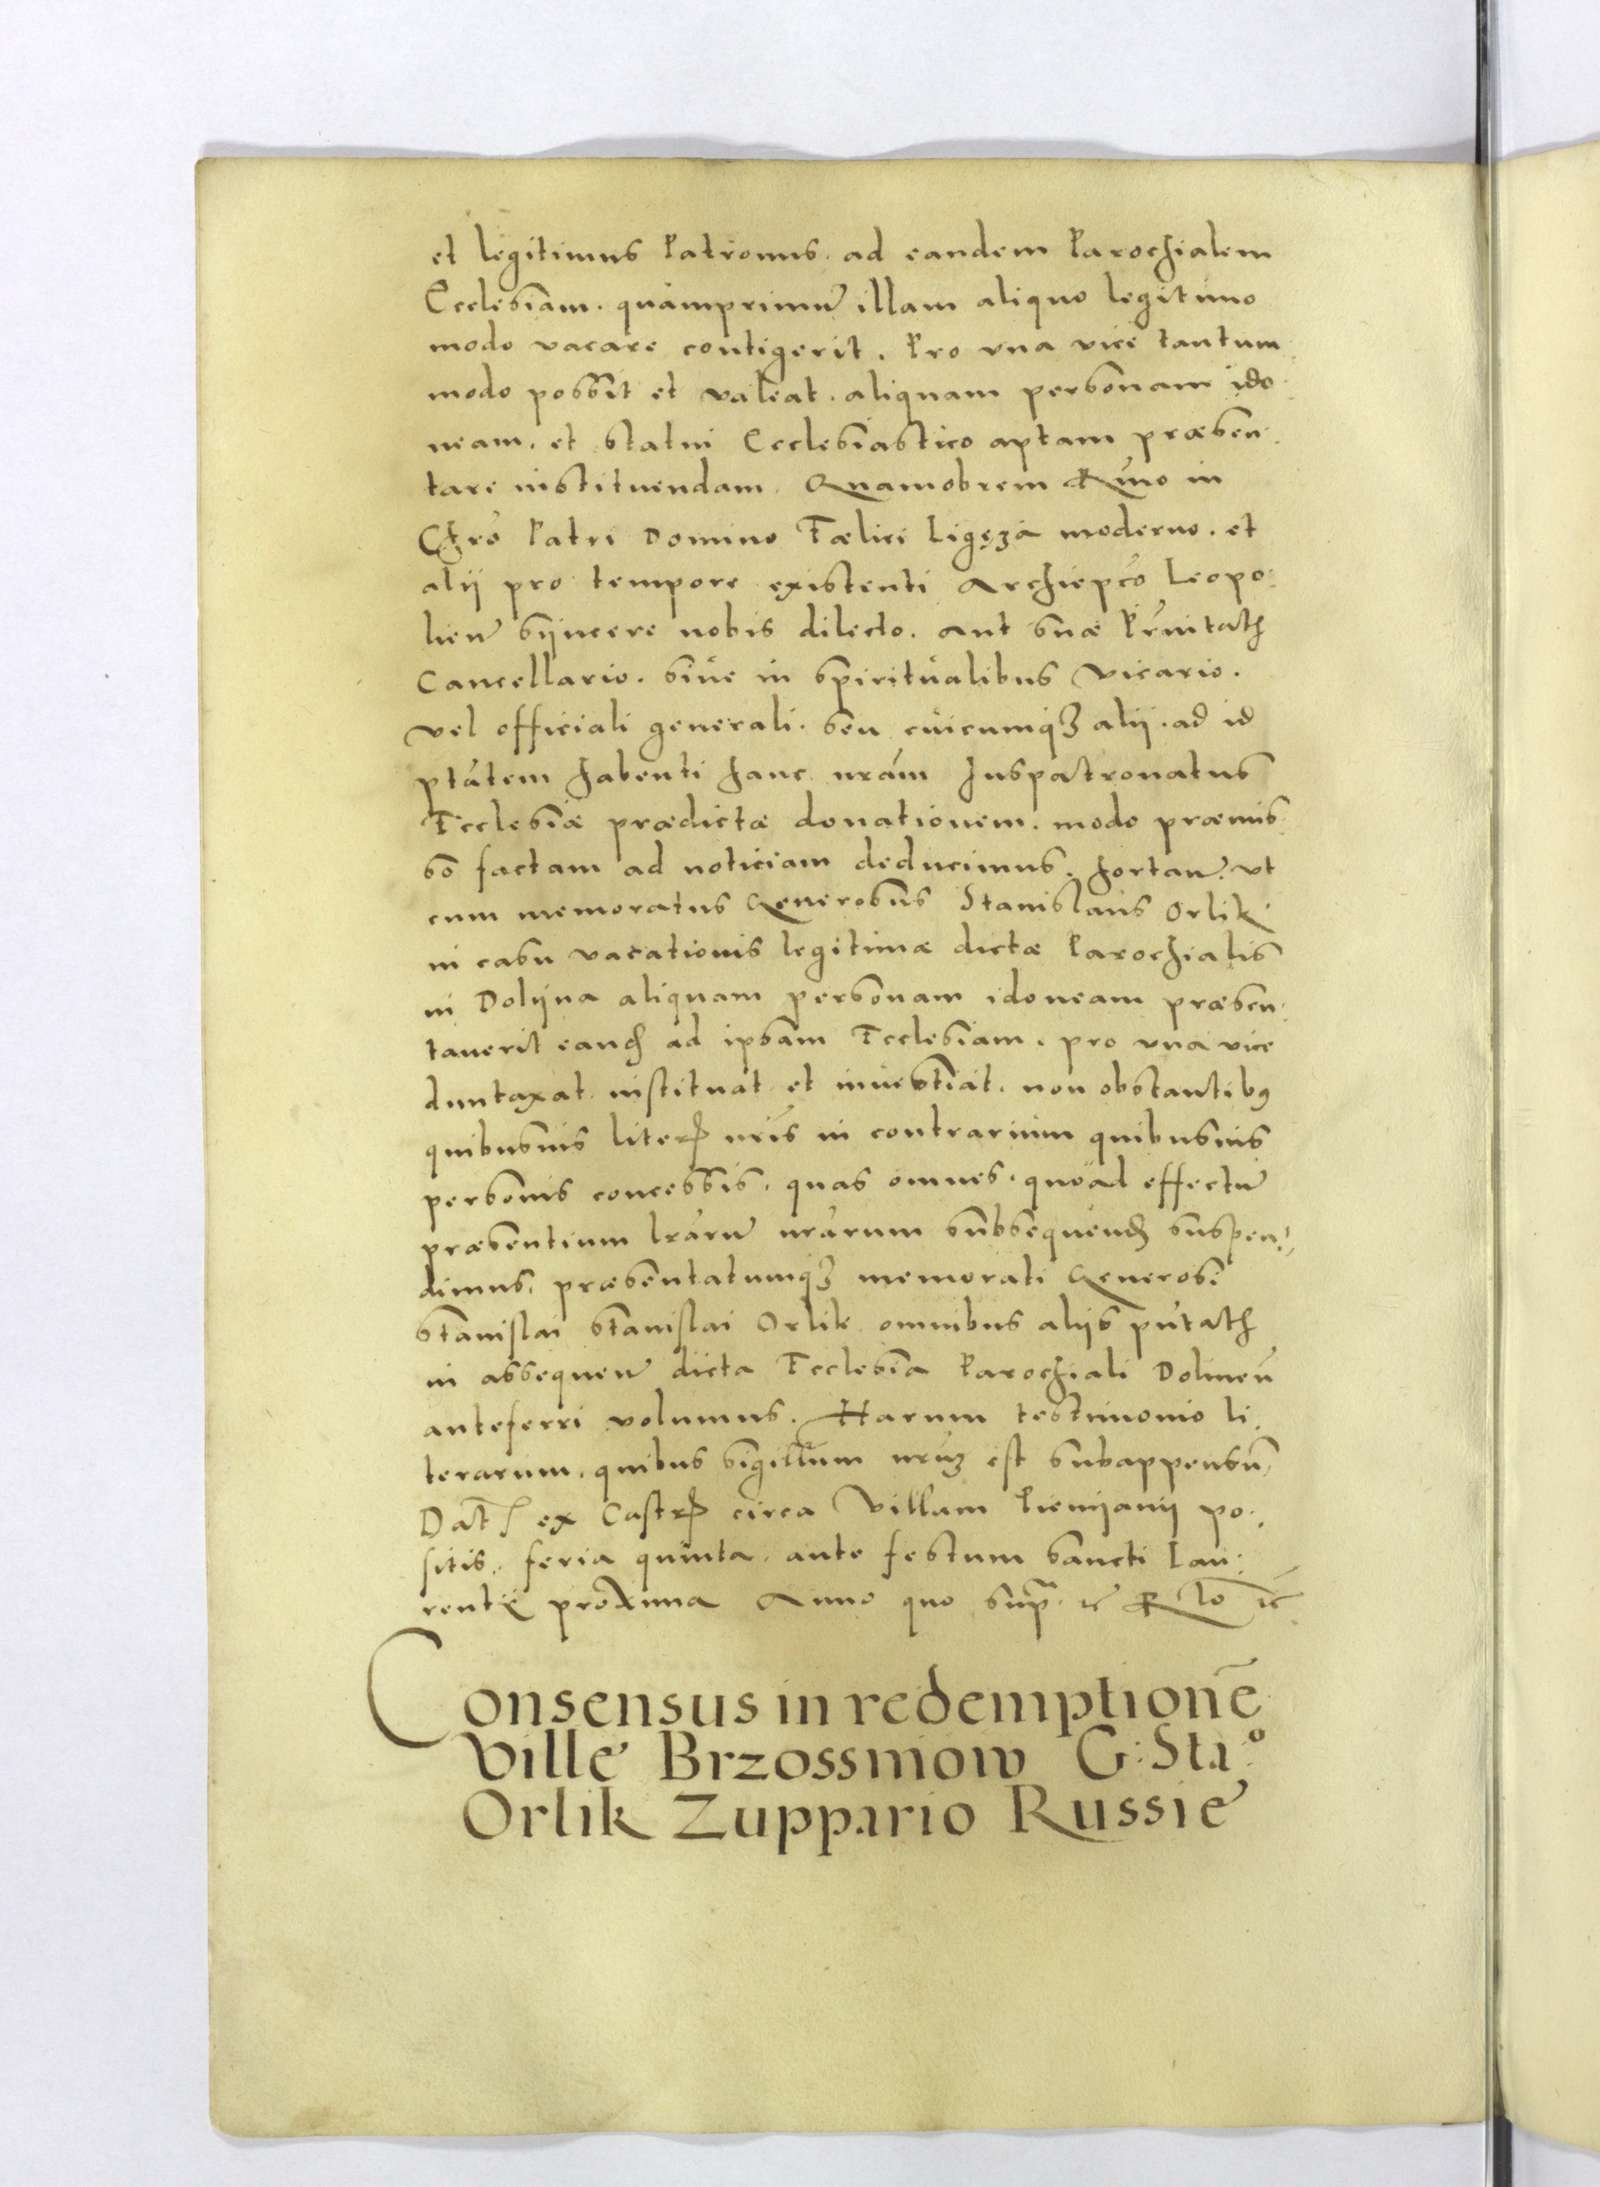 et legitimus Patronus. ad eandem Parochialem
Ecclesiam. quamprimũ illam aliquo legitimo
modo vacare contigerit. Pro vna vice tantum
modo possit et valeat. aliquam personam ido
neam. et statui Ecclesiastico aptam præsen
tare instituendam. Quamobrem Rmo in
Chro Patri Domino Fælici Ligęza moderno. et
alij pro tempore existenti Archiepco Leopo
lien̄ syncere nobis dilecto. aut suæ Prnitatis
Cancellario. siue in spiritualibus Vicario.
vel officiali generali. seu cuicumqʒ alij. ad id
ptatem habenti hanc nram Juspatronatus
Ecclesiæ prædictæ donationem. modo præmis
so factam ad noticiam deducimus. hortan̄. vt
cum memoratus Generosus Stanislaus Orlik
in casu vacationis legitimæ dictæ Parochialis
in Dolyna aliquam personam idoneam præsen
tauerit eandē ad ipsam Ecclesiam. pro vna vice
duntaxat instituat et inuestiat. non obstantibꝯ
quibusuis literꝭ nris in contrarium quibusuis
personis concessis. quas omnes. quoad effectū
præsentium lrarū nrarum subsequendʒ suspen
dimus, præsentatumqʒ memorati Generosi
Stanislai Stanislai Orlik omnibus alijs pntatꝭ
in assequen̄ dicta Ecclesia Parochiali Dolinen̄
anteferri volumus. Harum testimonio li
terarum. quibus sigillum nrūʒ est subappensū
Dat ex Castrꝭ circa Villam Pieniianii po
sitis. feria quinta. ante festum sancti Lau
rentij proxima Anno quo supra
Consensus in redemptionē
Ville Brzossniow G: Sta:º
Orlik Zuppario Russie